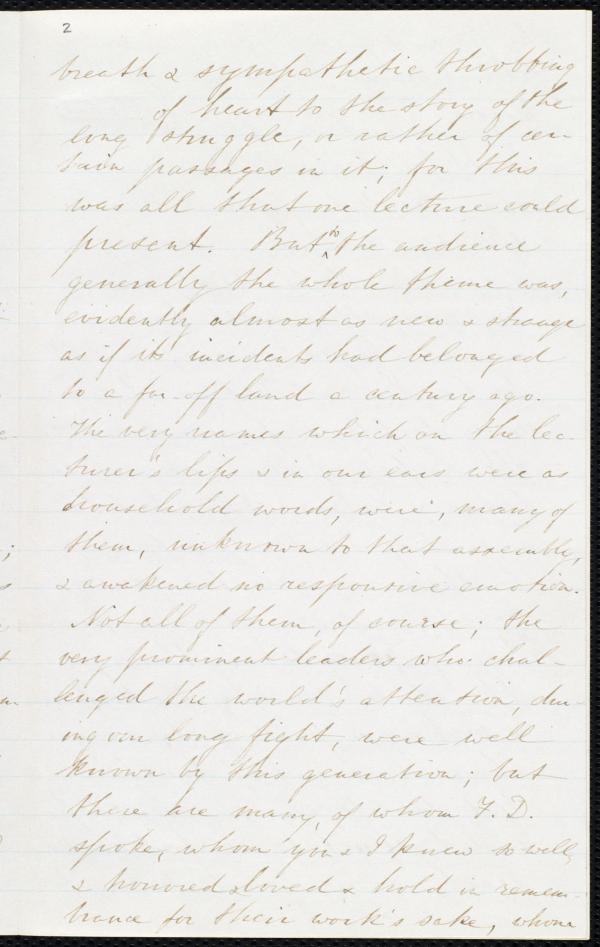 2
breath & sympathetic throbbing
of heart to the story of the
long struggle, or rather of cer-
tain passages in it; for this
was all that one lecture could
present. But to the audience
generally the whole theme was,
evidently almost as new & strange
as if its incidents had belonged
to a far-off land a century ago.
The very names which on the lec-
turer's lips & in our ears were as
household words, were, many of
them, unknown to that assembly,
& awakened no responsive emotion.
Not all of them, of course; the
very prominent leaders who chal-
lenged the world's attention, dur-
ing our long fight, were well
known by this generation; but
there are many, of whom F. D.
spoke, whom you & I knew so well,
& honored & loved & hold in remem-
brance for their work's sake, whom